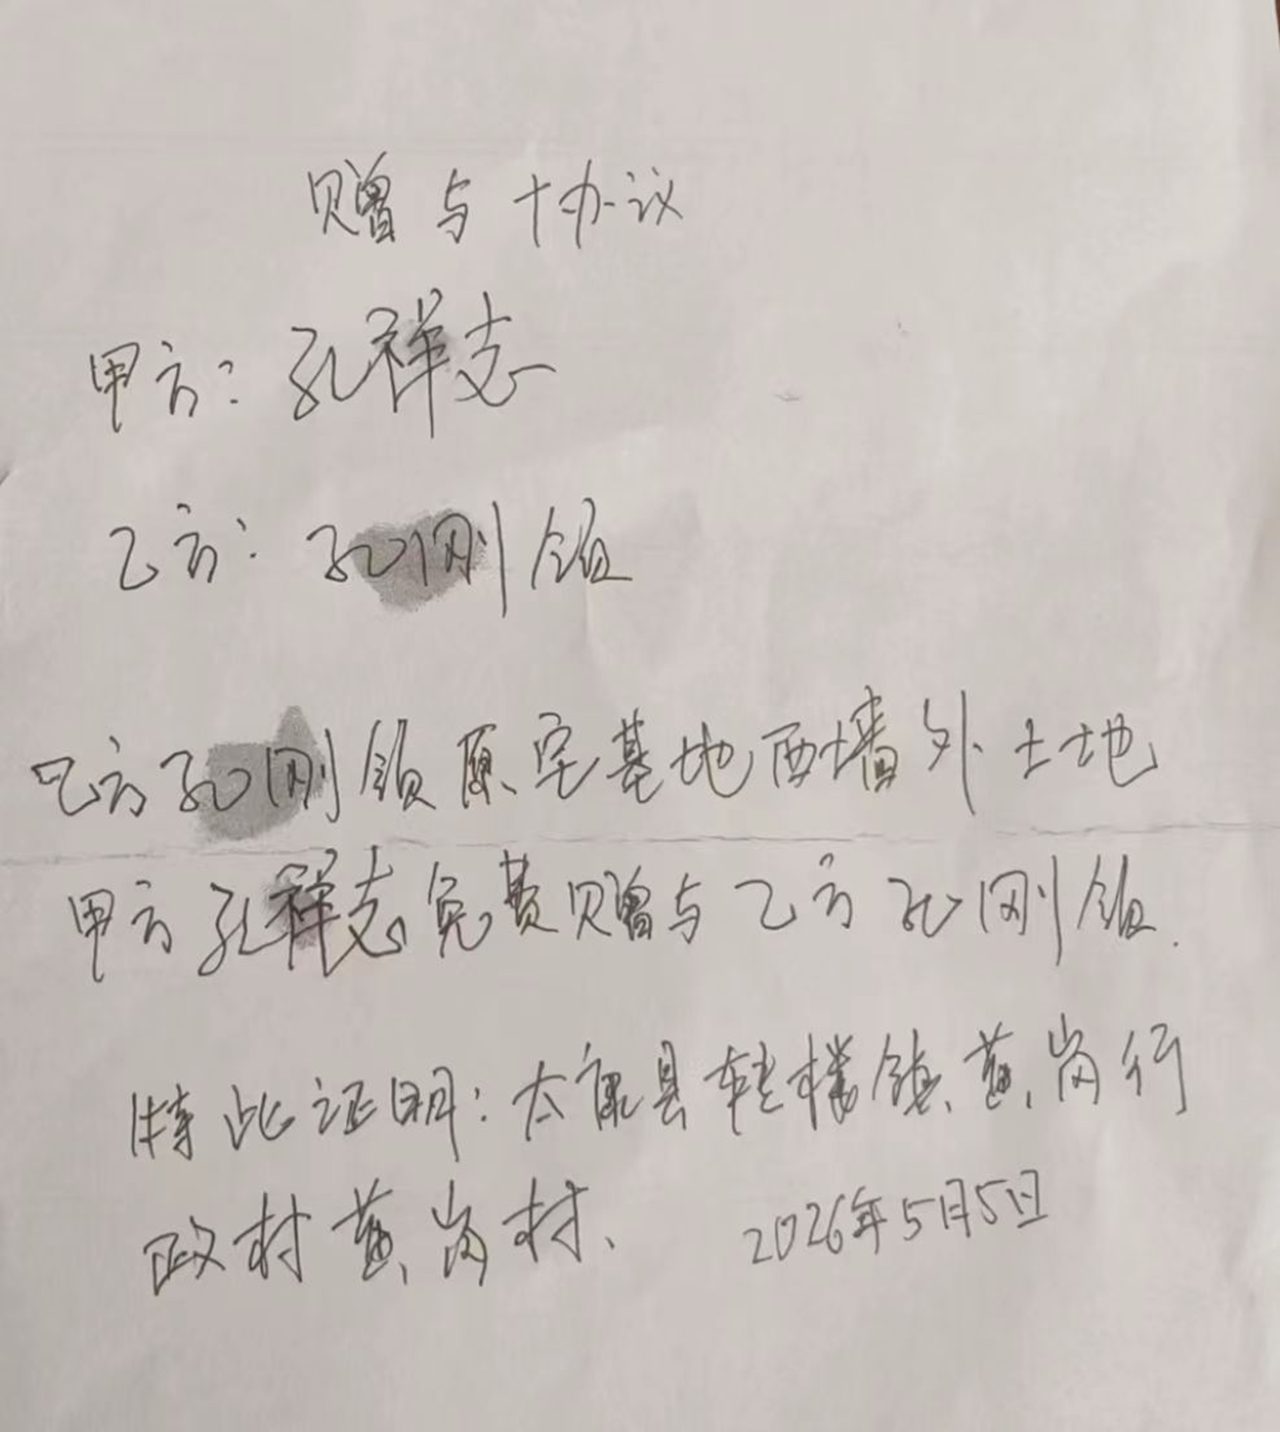 赠与协议
甲方：孔祥志
乙方：孔刚领
乙方孔刚领原宅基地西墙外土地
甲方孔祥志免费赠与乙方孔刚领.
特此证明：太康县转楼镇黄岗行
政村黄岗村、 2026年5月5日